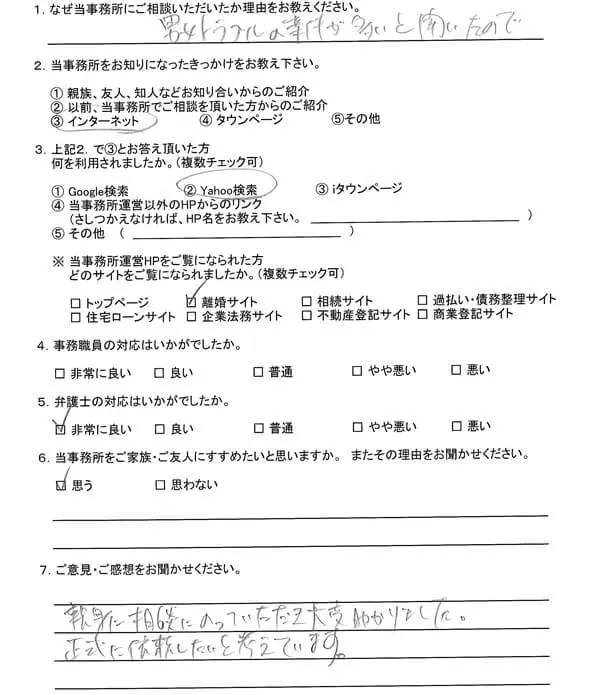 1. なぜ当事務所にご相談いただいたか理由をお教えください。
男女トラブルの事件が多いと聞いたので
2. 当事務所をお知りになったきっかけをお教え下さい。
① 親族、友人、知人などお知り合いからのご紹介
② 以前、当事務所でご相談を頂いた方からのご紹介
③ インターネット ④ タウンページ ⑤その他
3. 上記2. で③とお答え頂いた方
何を利用されましたか。(複数チェック可)
① Google検索 ② Yahoo検索 ③ iタウンページ
④ 当事務所運営以外のHPからのリンク
(さしつかえなければ、HP名をお教え下さい。 )
⑤ その他 ( )
※ 当事務所運営HPをご覧になられた方
どのサイトをご覧になられましたか。(複数チェック可)
□ トップページ ☑ 離婚サイト □ 相続サイト □ 過払い・債務整理サイト
□ 住宅ローンサイト □ 企業法務サイト □ 不動産登記サイト □ 商業登記サイト
4. 事務職員の対応はいかがでしたか。
□ 非常に良い □ 良い □ 普通 □ やや悪い □ 悪い
5. 弁護士の対応はいかがでしたか。
☑ 非常に良い □ 良い □ 普通 □ やや悪い □ 悪い
6. 当事務所をご家族・ご友人にすすめたいと思いますか。 またその理由をお聞かせください。
☑ 思う □ 思わない
7. ご意見・ご感想をお聞かせください。
親身に相談にのっていただき大変助かりました。
正式に依頼したいと考えています。